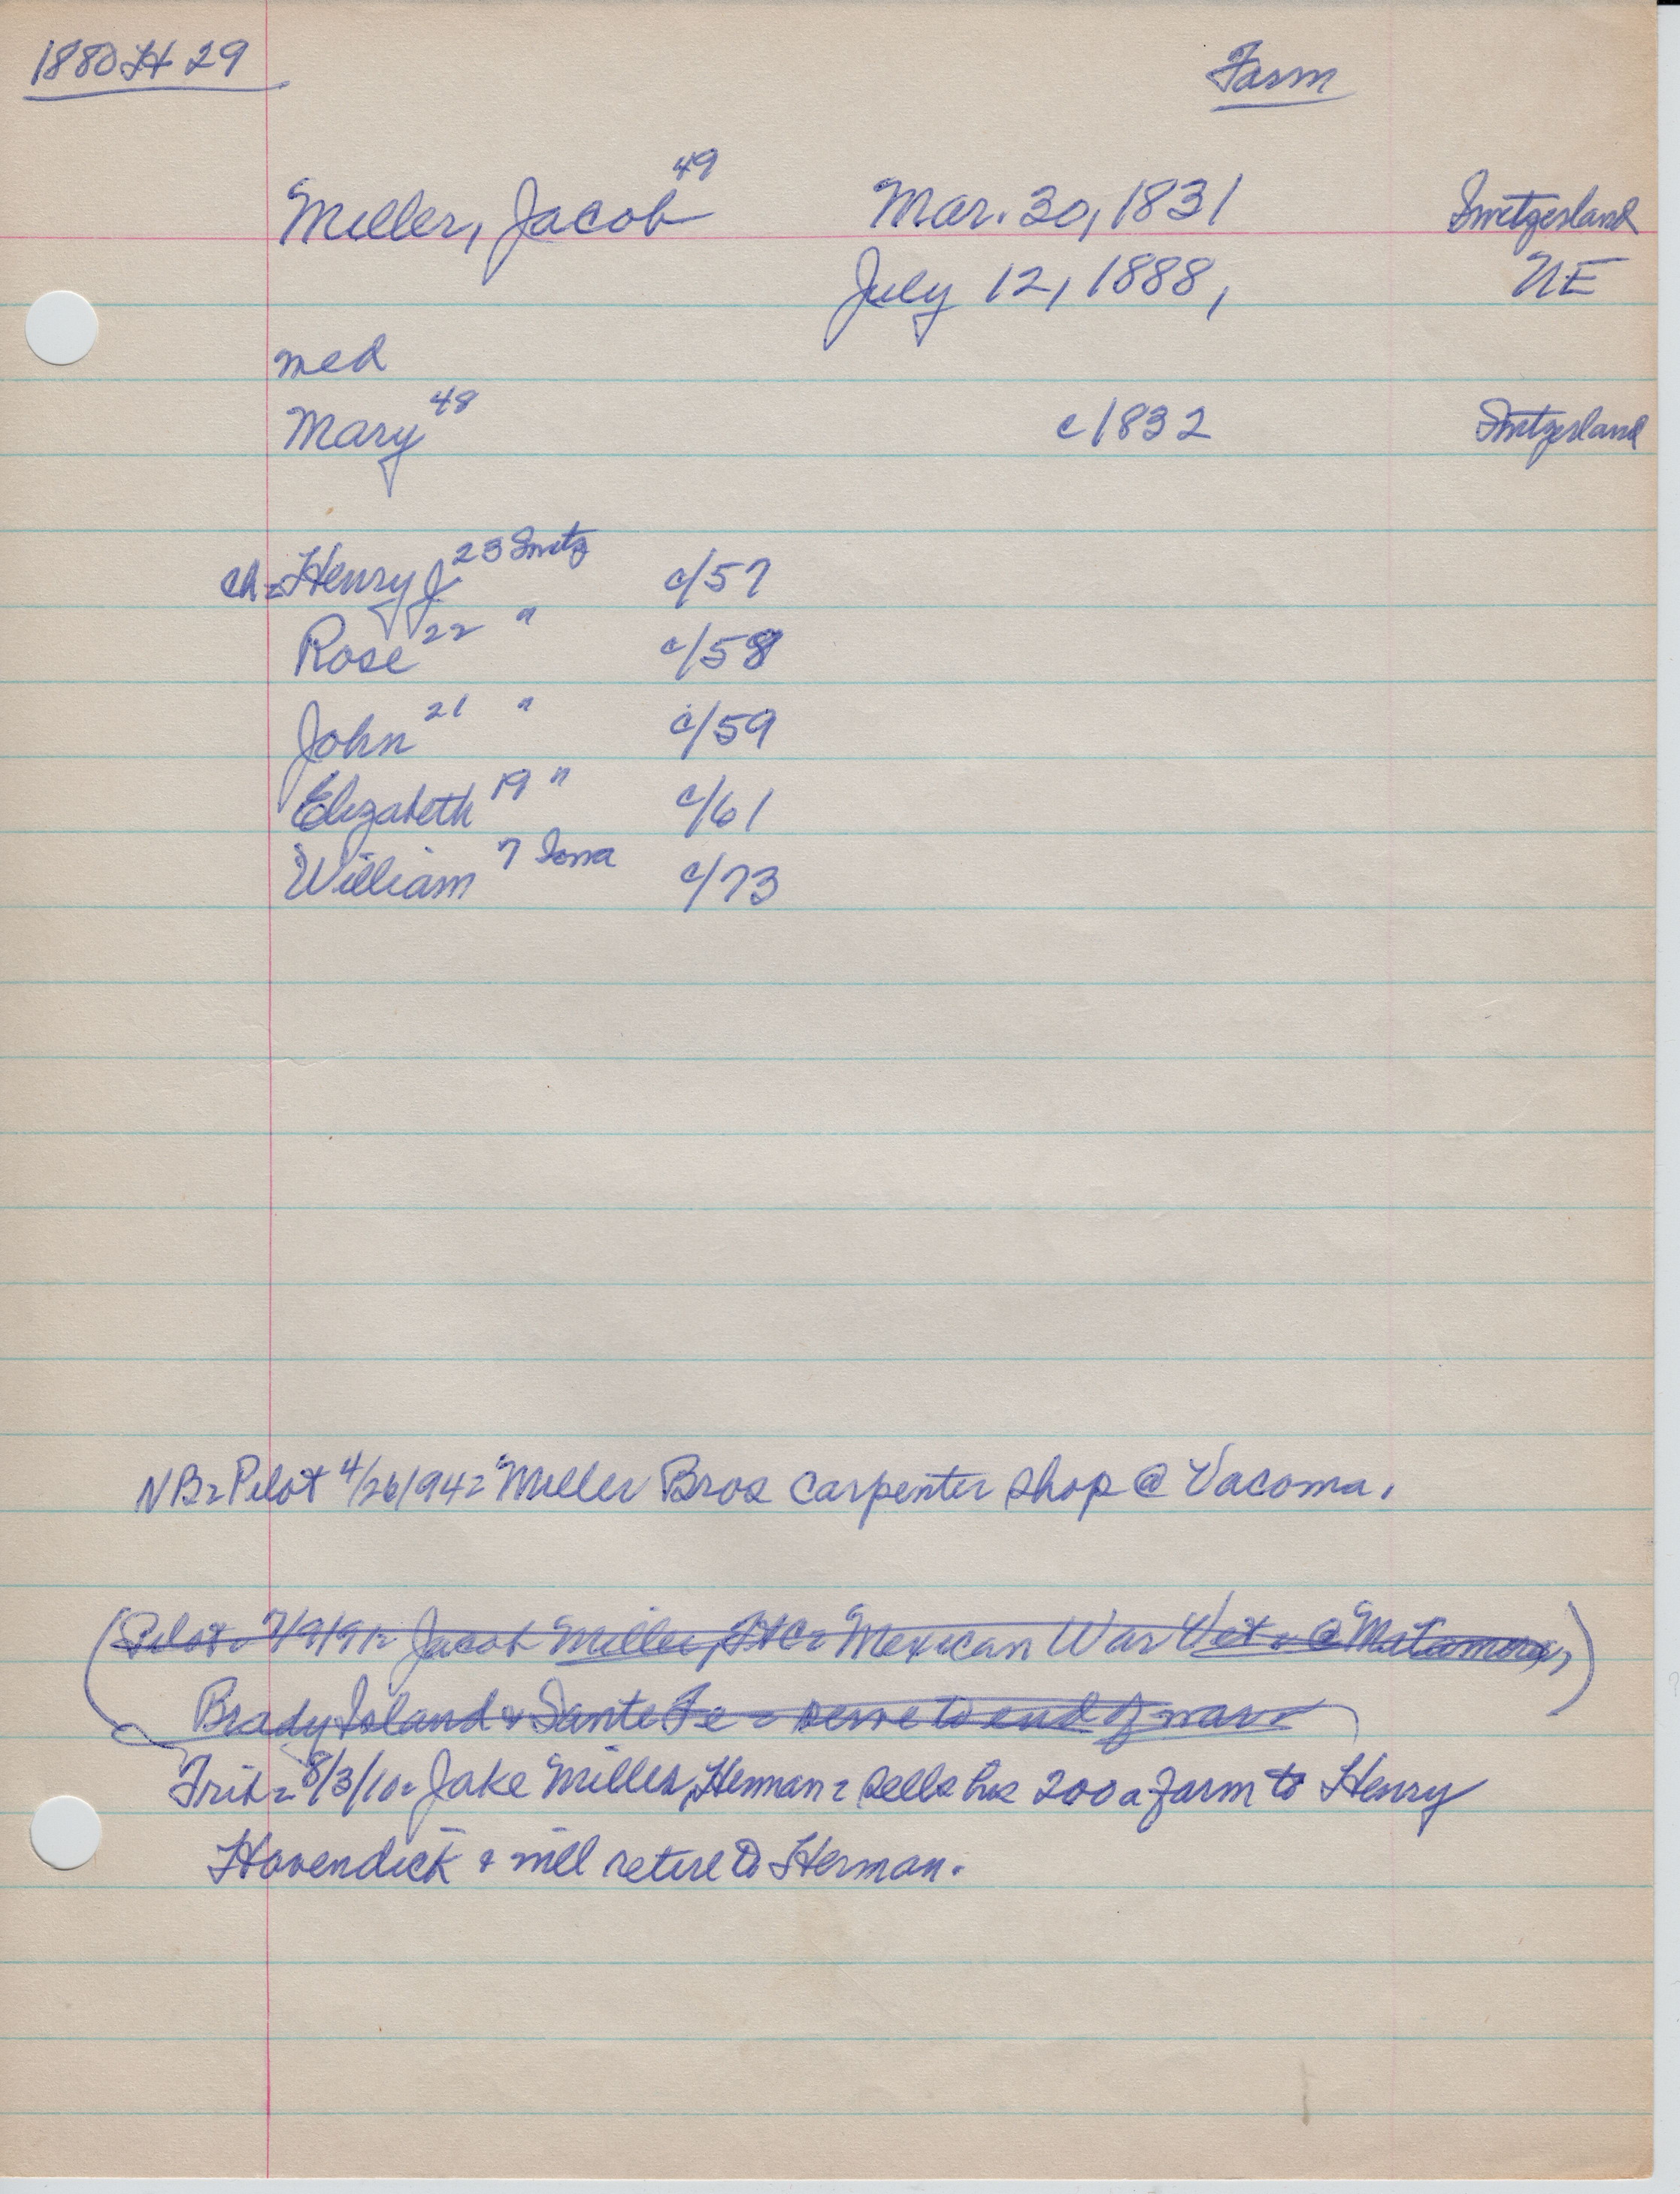 1880 H 29
Farm
Miller, Jacob 49 Mar. 30, 1831 Switzerland
July 12, 1888, NE
med
Mary 48 c1832 Switzerland
ch= Henry J 23 Switz c/57
Rose 22 " c/58
John 21 " c/59
Elizabeth 19 " c/61
William 7 Iowa c/73
NB= Pilot 4/26/94= Miller Bros carpenter shop @ Vacoma.
(Pilot= 7/9/91= Jacob Miller, Mexican War Vet= @ Matamora,)
Brady Island & Sante Fe = serve to end of war
Trib= 8/3/10= Jake Miller, Herman= sells his 200 a farm to Henry
Hovendick & will retire to Herman.